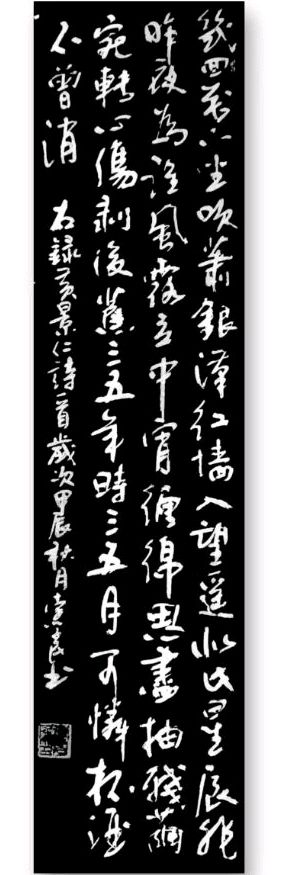 幾回花下坐吹蕭銀漢紅墻入望遥似此星辰非
昨夜為誰風露立中宵纏綿思盡抽殘繭
宛轉心傷剥後蕉三五年時三五月可憐杯酒
不曾消 右録黄景仁詩一首歲次甲辰秋月書